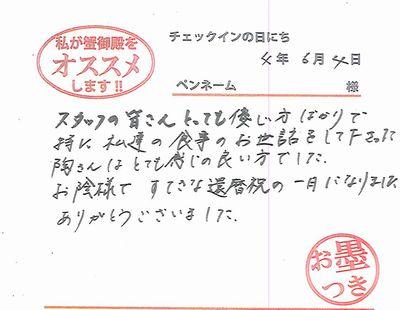 私が蟹御殿を
オススメ
します!!
チェックインの日にち
4年 6月 4日
ペンネーム 様
スタッフの皆さんとっても優しい方ばかりで
特に私達の食事のお世話をして下さった
陶さんはとても感じの良い方でした。
お陰様で すてきな還暦祝の一日になりました
ありがとうございました。
お墨
つき